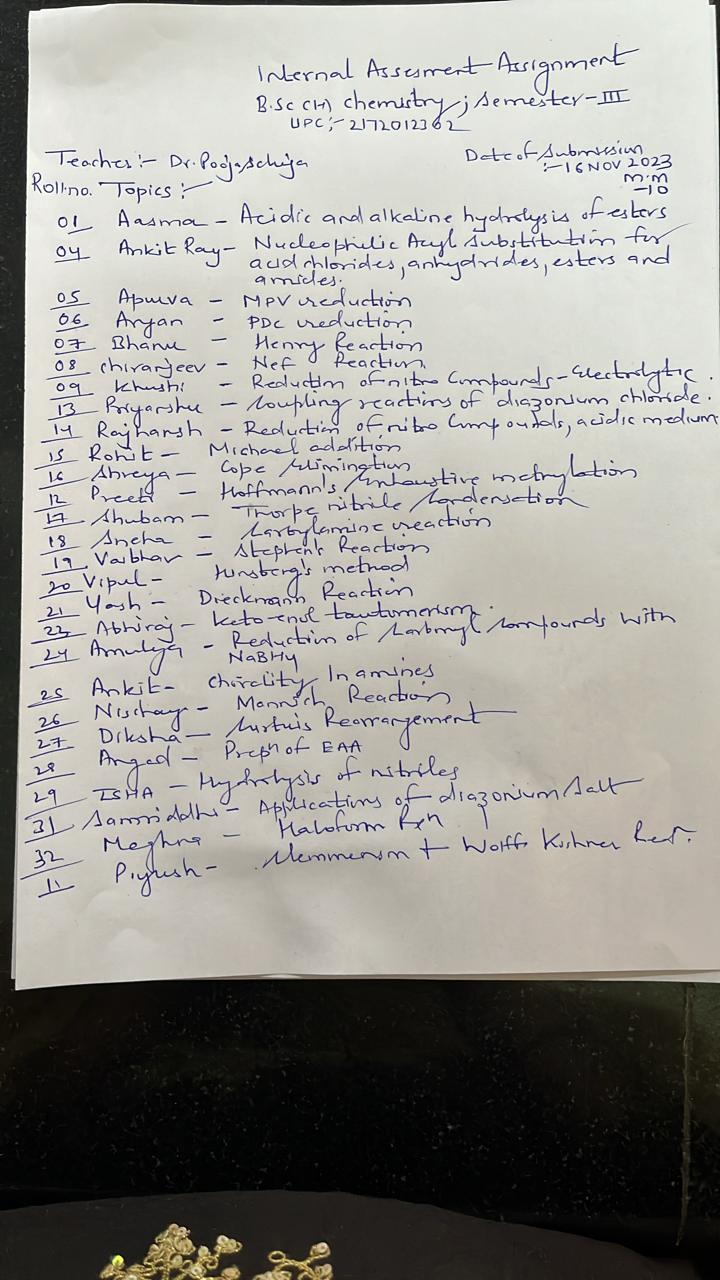 Internal Assesment Assignment
B.Sc (H) chemistry ; Semester-III
UPC:- 2172012362
Teacher:- Dr. Pooja
Date of Submission
:- 16 NOV 2023
M.M
-10
Roll.no. Topics :-
01 Aasma - Acidic and alkaline hydrolysis of esters
04 Ankit Ray - Nucleophilic Acyl Substitution for
acid chlorides, anhydrides, esters and
amides.
05 Apurva - MPV reduction
06 Aryan - PDC reduction
07 Bhanu - Henry Reaction
08 chiranjeev - Nef Reaction
09 Khushi - Reduction of nitro Compounds - Electrolytic.
13 Priyanshu - Coupling reactions of diazonium chloride.
14 Rajhansh - Reduction of nitro Compounds, acidic medium
15 Rohit - Michael addition
16 Shreya - Cope elimination
12 Preeti - Hoffmann's Exhaustive methylation
17 Shubam - Thorpe nitrile Condensation
18 Sneha - Carbylamine reaction
19 Vaibhav - Stephen's Reaction
20 Vipul - Hinsberg's method
21 Yash - Dieckmann Reaction
22 Abhiraj - Keto-enol tautomerism.
24 Amulya - Reduction of Carbonyl Compounds with
NaBH4
25 Ankit - Chirality In amines
26 Nischay - Mannich Reaction
27 Diksha - Curtuis Rearrangement
28 Angad - Prepn of EAA
29 ISHA - Hydrolysis of nitriles
31 Samriddhi - Applications of diazonium Salt
32 Meghna - Haloform Rxn
11 Piyush - Clemmenson + Wolff Kishner Red.